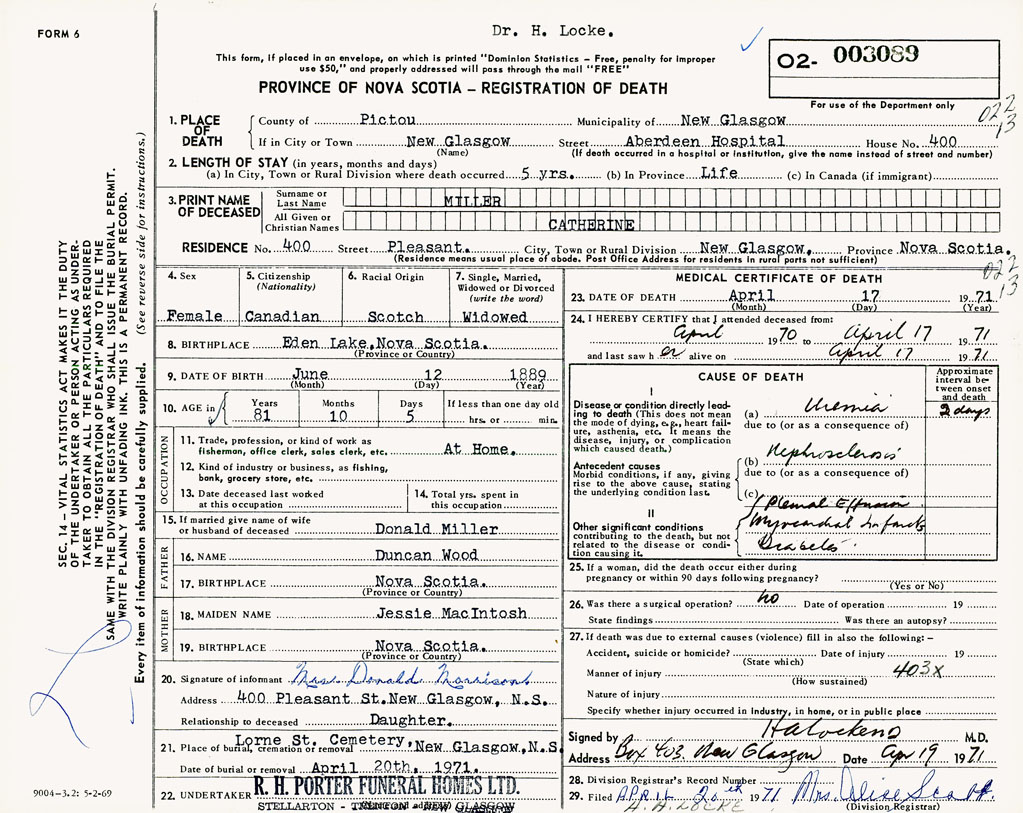 FORM 6
Dr. H. Locke.
This form, if placed in an envelope, on which is printed "Dominion Statistics – Free, penalty for improper
use $50," and properly addressed will pass through the mail "FREE"
PROVINCE OF NOVA SCOTIA – REGISTRATION OF DEATH
02- 003089
For use of the Department only
022
13
1. PLACE OF DEATH
County of Pictou Municipality of New Glasgow
If in City or Town New Glasgow Street Aberdeen Hospital House No. 400
(Name) (If death occurred in a hospital or institution, give the name instead of street and number)
2. LENGTH OF STAY (in years, months and days)
(a) In City, Town or Rural Division where death occurred 5 yrs. (b) In Province Life (c) In Canada (if immigrant)
3. PRINT NAME OF DECEASED
Surname or Last Name MILLER
All Given or Christian Names CATHERINE
RESIDENCE No. 400 Street Pleasant. City, Town or Rural Division New Glasgow. Province Nova Scotia.
(Residence means usual place of abode. Post Office Address for residents in rural parts not sufficient)
4. Sex
Female
5. Citizenship
(Nationality)
Canadian
6. Racial Origin
Scotch
7. Single, Married,
Widowed or Divorced
(write the word)
Widowed
8. BIRTHPLACE Eden Lake, Nova Scotia.
(Province or Country)
9. DATE OF BIRTH June 12 1889
(Month) (Day) (Year)
10. AGE in
Years Months Days If less than one day old
81 10 5 hrs. or min.
OCCUPATION
11. Trade, profession, or kind of work as
fisherman, office clerk, sales clerk, etc. At Home.
12. Kind of industry or business, as fishing,
bank, grocery store, etc.
13. Date deceased last worked
at this occupation
14. Total yrs. spent in
this occupation
15. If married give name of wife
or husband of deceased Donald Miller
FATHER
16. NAME Duncan Wood
17. BIRTHPLACE Nova Scotia.
(Province or Country)
MOTHER
18. MAIDEN NAME Jessie MacIntosh
19. BIRTHPLACE Nova Scotia.
(Province or Country)
20. Signature of informant Mrs. Donald Morrison
Address 400 Pleasant St. New Glasgow, N.S.
Relationship to deceased Daughter.
21. Place of burial, cremation or removal Lorne St. Cemetery, New Glasgow, N.S.
Date of burial or removal April 20th, 1971.
22. UNDERTAKER R. H. PORTER FUNERAL HOMES LTD.
STELLARTON - TRENTON NEW GLASGOW
MEDICAL CERTIFICATE OF DEATH
022
13
23. DATE OF DEATH April 17 1971
(Month) (Day) (Year)
24. I HEREBY CERTIFY that I attended deceased from:
April 1970 to April 17 1971
and last saw her alive on April 17 1971
CAUSE OF DEATH
Approximate
interval be-
tween onset
and death
I
Disease or condition directly lead-
ing to death (This does not mean
the mode of dying, e.g., heart fail-
ure, asthenia, etc. It means the
disease, injury, or complication
which caused death.)
(a) Uremia 2 days
due to (or as a consequence of)
Antecedent causes
Morbid conditions, if any, giving
rise to the above cause, stating
the underlying condition last.
(b) Nephrosclerosis
due to (or as a consequence of)
(c)
II
Other significant conditions
contributing to the death, but not
related to the disease or condi-
tion causing it.
Pleural Effusion
Myocardial Infarcts
Diabetes
25. If a woman, did the death occur either during
pregnancy or within 90 days following pregnancy?
(Yes or No)
26. Was there a surgical operation? No Date of operation 19
State findings Was there an autopsy?
27. If death was due to external causes (violence) fill in also the following: –
Accident, suicide or homicide? Date of injury 19
(State which)
Manner of injury 403X
(How sustained)
Nature of injury
Specify whether injury occurred in industry, in home, or in public place
Signed by M.D.
Address Box 403, New Glasgow Date Apr 19 1971
28. Division Registrar's Record Number
29. Filed APRIL 20th 1971 Mrs.
H. A. LOCKE (Division Registrar)
SEC. 14 – VITAL STATISTICS ACT MAKES IT THE DUTY
OF THE UNDERTAKER OR PERSON ACTING AS UNDER-
TAKER TO OBTAIN ALL THE PARTICULARS REQUIRED
IN THE "REGISTRATION OF DEATH" AND TO FILE THE
SAME WITH THE DIVISION REGISTRAR WHO SHALL ISSUE THE BURIAL PERMIT.
WRITE PLAINLY WITH UNFADING INK. THIS IS A PERMANENT RECORD.
Every item of information should be carefully supplied. (See reverse side for instructions.)
9004-3.2: 5-2-69